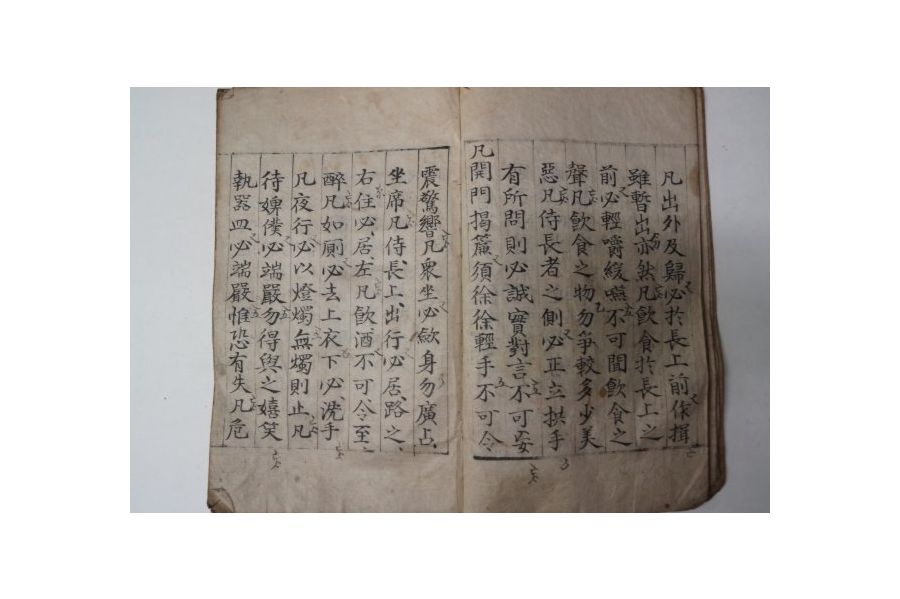 凡出外及歸必於長上前作揖
雖暫出亦然凡飮食於長上之
前必輕嚼緩嚥不可聞飮食之
聲凡飮食之物勿爭較多少美
惡凡侍長者之側必正立拱手
有所問則必誠實對言不可妄
凡開門揭簾須徐徐輕手不可令
震驚響凡衆坐必斂身勿廣占
坐席凡侍長上出行必居路之
右住必居左凡飮酒不可令至
醉凡如厠必去上衣下必洗手
凡夜行必以燈燭無燭則止凡
待婢僕必端嚴勿得與之嬉笑
執器皿必端嚴惟恐有失凡危